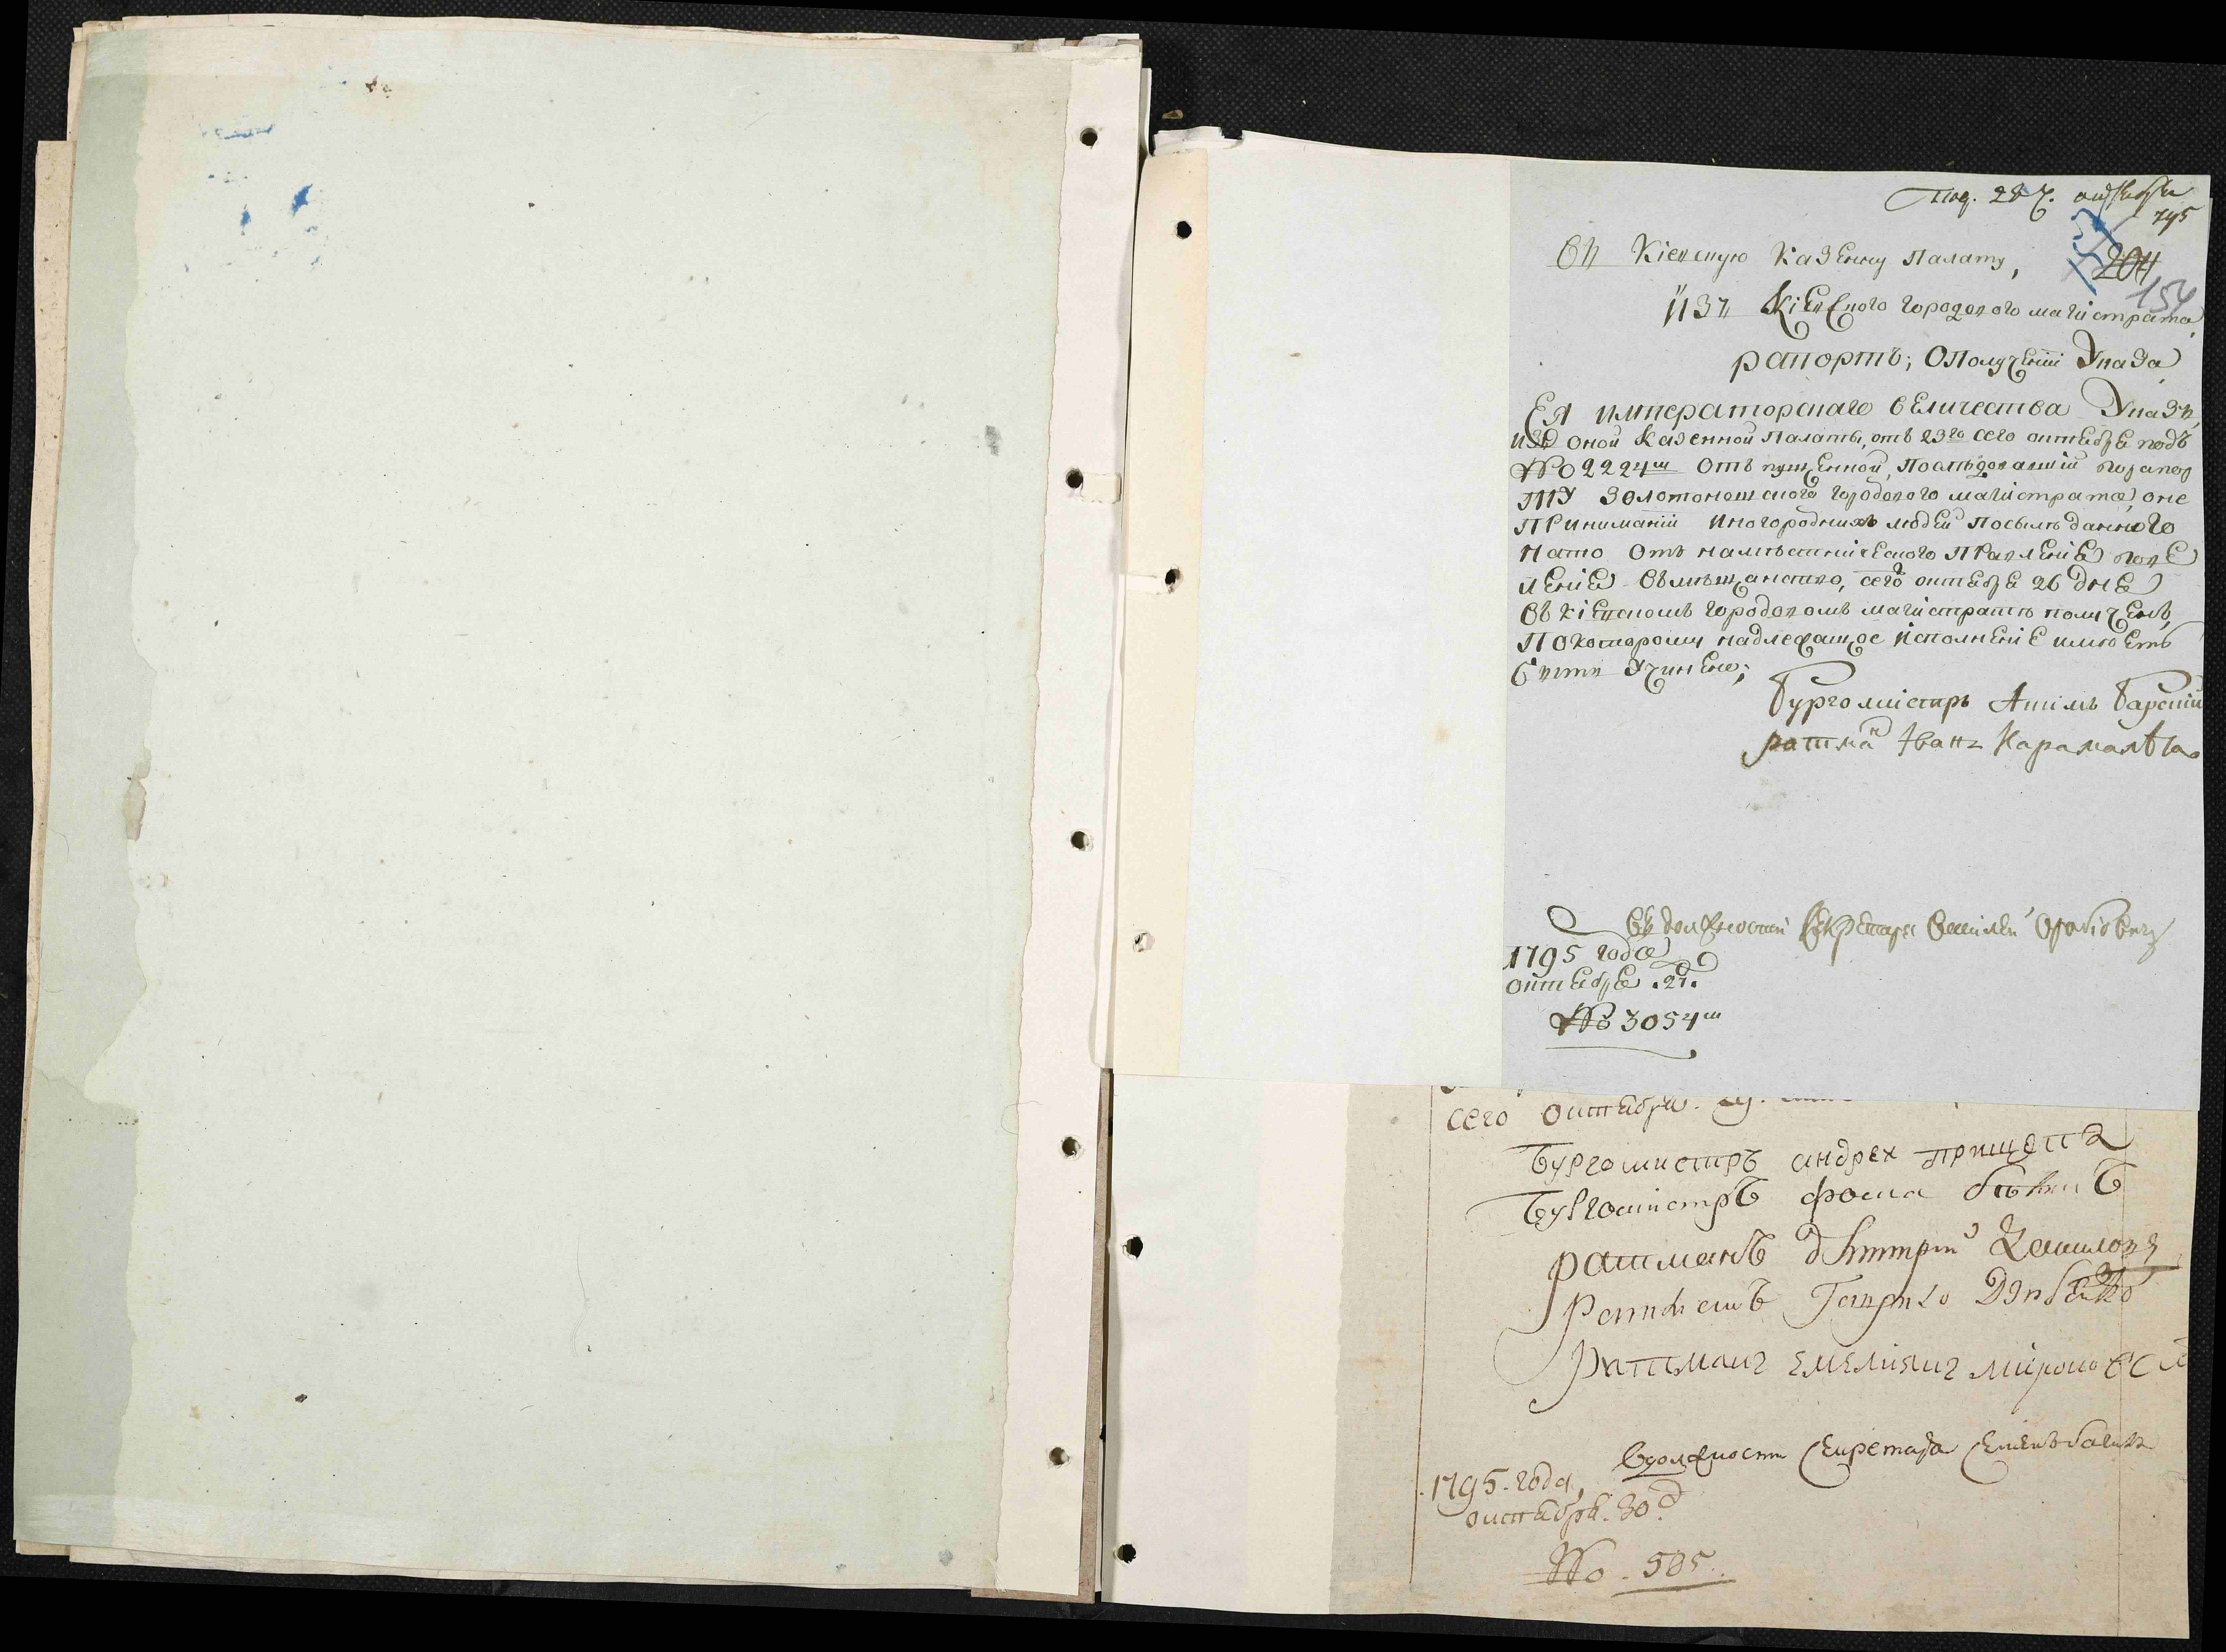 Под. 28 Ч. октября
795
Въ Кіевскую Казенну Палату,
204
154
Изъ Кіевского городового магистрата
рапортъ, О Полученіи Указа
Ея императорскаго величества Указъ
изъ оной Казенной Палаты, отъ 23го сего октября подъ
№ 2224м отъпущенной, Последовавшій порапор
ту Золотоношского городового магистрата, оне
Приниманіи Иногороднихъ людей Посылъ данного
Нато Отъ наместнического Правленія пове
ленія Въ мещанство, сего октября 26 дня
Въ кіевскомъ городовомъ магистрате полученъ,
Покоторому надлежащое Исполненіе имеетъ
быть Учинено;
Бургомистръ Акимъ Барскій
ратман Іванъ Карамалѣя
Въ должности Секретаря Василей
1795 года
октября .27.
№ 3054м
сего октября
Бургомистръ андрей прищепа
Бургомистръ фома
ратманъ дмитрий
Ратманъ Гаврило
Ратманъ емелиянъ мироно
Вдолжности Секретара
1795. года,
октября. 30 д
№. 505.